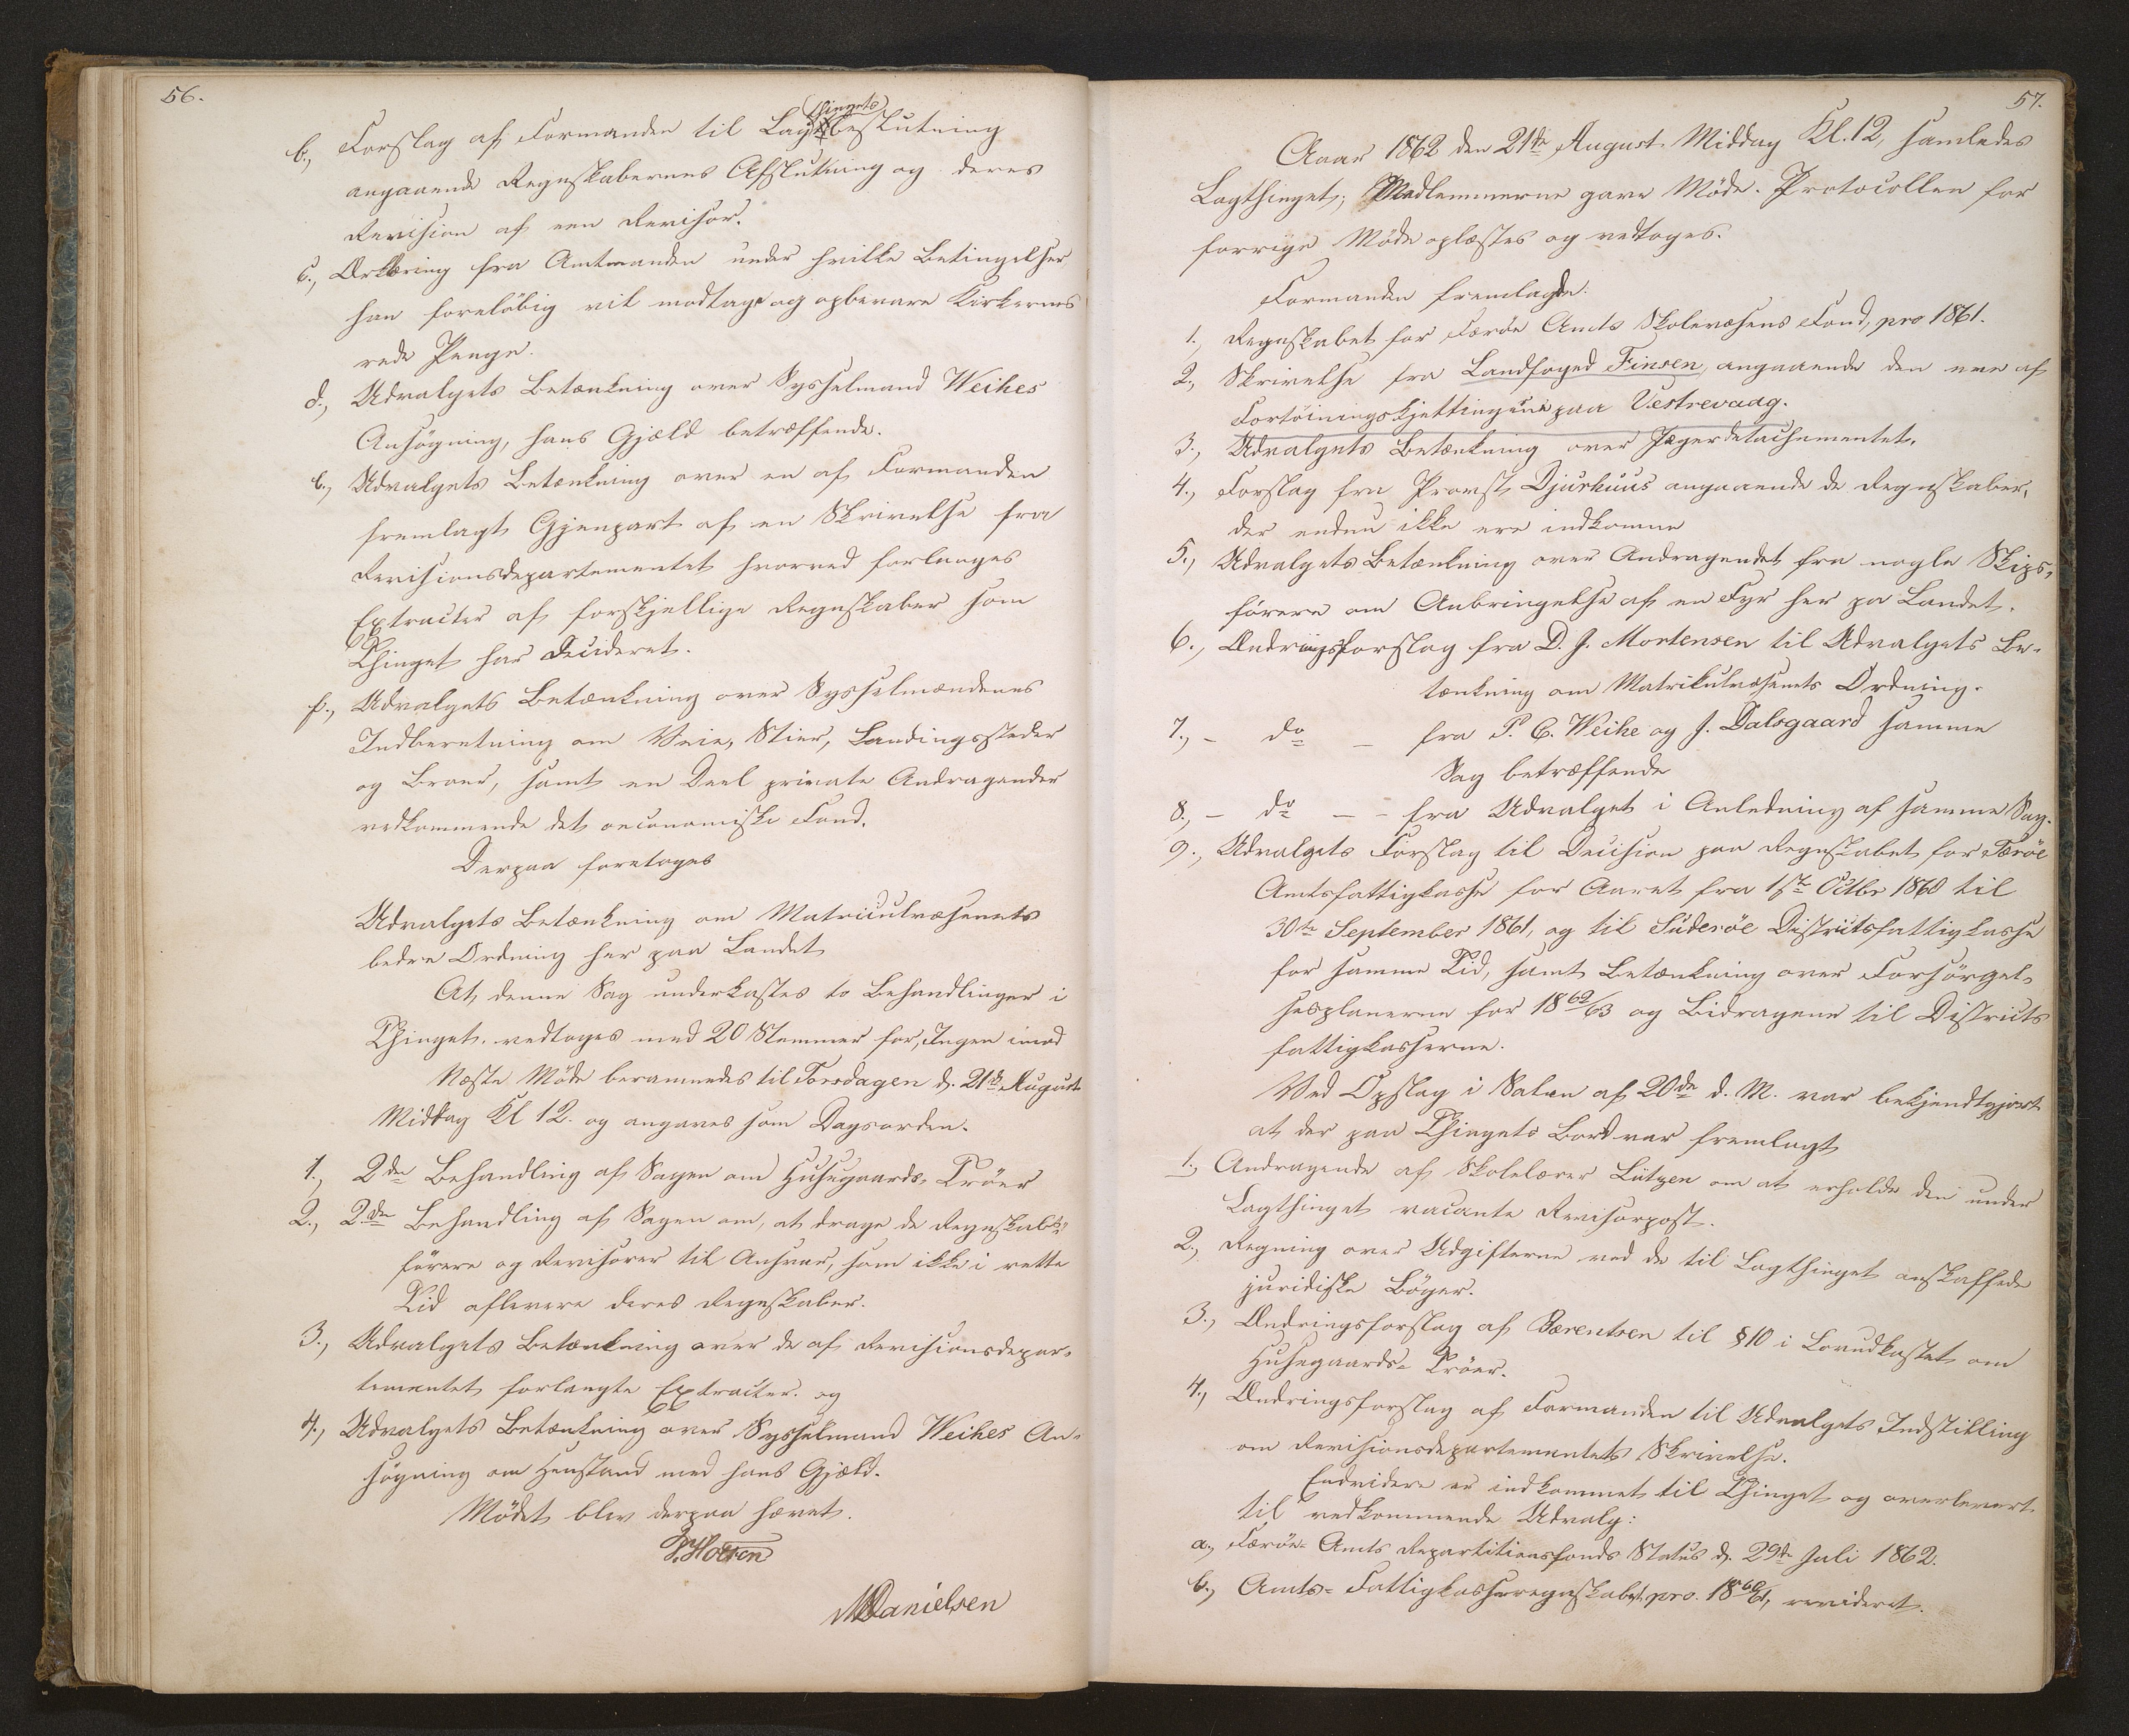 56.
b., Forslag af Formanden til Lagthingets beslutning
angaaende Regnskabernes Afslutning og deres
Revision af een Revisor.
c., Erklæring fra Amtmanden under hvilke Betingelser
han foreløbig vil modtage og opbevare Kirkernes
rede Penge.
d., Udvalgets Betænkning over Sysselmand Weihes
Ansøgning, hans Gjæld betræffende.
e., Udvalgets Betænkning over en af Formanden
fremlagt Gjenpart af en Skrivelse fra
Revisionsdepartementet hvorved forlanges
Extracter af forskjellige Regnskaber som
Thinget har decideret.
f., Udvalgets Betænkning over Sysselmændenes
Indberetning om Veie, Stier, Landingssteder
og Broer, samt en Deel private Andragender
vedkommende det oeconomiske Fond.
Derpaa foretoges
Udvalgets Betænkning om Matriculvæsenets
bedre Ordning her paa Landet
At denne Sag underkastes to Behandlinger i
Thinget, vedtoges med 20 Stemmer for, Ingen imod
Næste Møde berammedes til Torsdagen d. 21de August
Middag Kl 12. og angaves som Dagsorden.
1., 2den Behandling af Sagen om Husegaards-Tröer
2., 2den Behandling af Sagen om, at drage de Regnskabs-
förere og Revisorer til Ansvar, som ikke i rette
Tid aflevere deres Regnskaber.
3., Udvalgets Betænkning over de af Revisionsdepar-
tementet forlangte Extracter. og
4., Udvalgets Betænkning over Sysselmand Weihes An-
søgning om Henstand med hans Gjæld.
Mødet blev derpaa hævet.
MDanielsen
57.
Aaar 1862 den 21de August Middag Kl. 12, samledes
Lagthinget; Medlemmerne gave Møde. Protocollen for
forrige Møde oplæstes og vedtoges.
Formanden fremlagde:
1., Regnskabet for Færøe Amts Skolevæsens Fond, pro 1861.
2., Skrivelse fra Landfoged Finsen, angaaende den ene af
Fortöiningskjettingene paa Vestrevaag.
3., Udvalgets Betænkning over Jægerdetachementet.
4., Forslag fra Provst Djurhuus angaaende de Regnskaber,
der endnu ikke ere indkomne
5., Udvalgets Betænkning over Andragendet fra nogle Skips-
förere om Anbringelse af en Fyr her pa Landet.
6., Ændringsforslag fra D. J. Mortensen til Udvalgets Be-
tænkning om Matrikulvæsenets Ordning.
7., - do - fra P. C. Weihe og J. Dalsgaard samme
Sag betræffende
8., - do - - fra Udvalget i Anledning af samme Sag.
9., Udvalgets Forslag til Decision paa Regnskabet for Færøe
Amtsfattigkasse for Aaret fra 1ste Octbr 1860 til
30te September 1861, og til Süderöe Districtsfattigkasse
for samme Tid, samt Betænkning over Forsörgel-
sesplanerne for 1862/63 og Bidragene til Districts
fattigkasserne.
Ved Opslag i Salen af 20de d. M. var bekjendtgjort
at der paa Thingets Bord var fremlagt
1., Andragende af Skolelærer Lützen om at erholde den under
Lagthinget vacante Revisorpost.
2., Regning over Udgifterne ved de til Lagthinget anskaffede
juridiske Böger.
3., Ændringsforslag af Bærentsen til § 10 i Lovudkastet om
Husegaards-Tröer.
4., Ændringsforslag af Formanden til Udvalgets Indstilling
om Revisionsdepartementets Skrivelse.
Endvidere er indkommet til Thinget og overlevert
til vedkommende Udvalg:
a., Færøe-Amts Repartitionsfonds Status d. 29de Juli 1862.
b., Amts-Fattigkasseregnskabet pro. 1860/61, revideret.